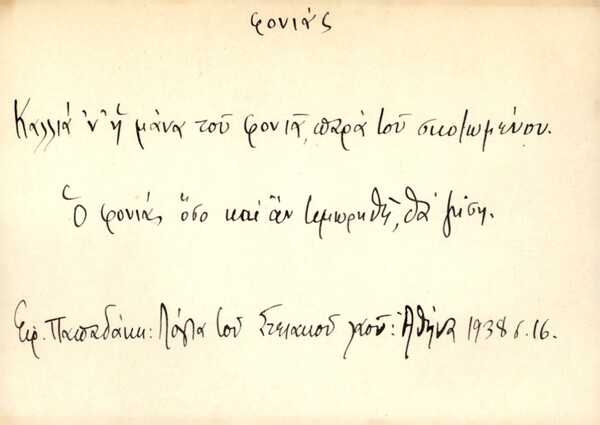 φονιάς
Καλλιά 'ν' ἡ μάνα τοῦ φονιᾶ, παρά τοῦ σκοτωμένου.
Ὁ φονιάς ὅσο καί ἄν τιμωρηθῆ, θά ζήση.
Εἰρ. Παπαδάκη: Λόγια τοῦ Στειακοῦ λαοῦ: Ἀθήνα 1938 σ. 16.